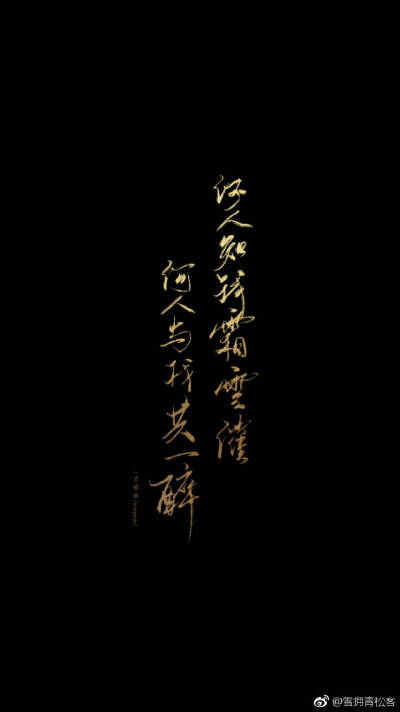 何人知我霜雪催
何人与我共一醉
@雪拥青松客